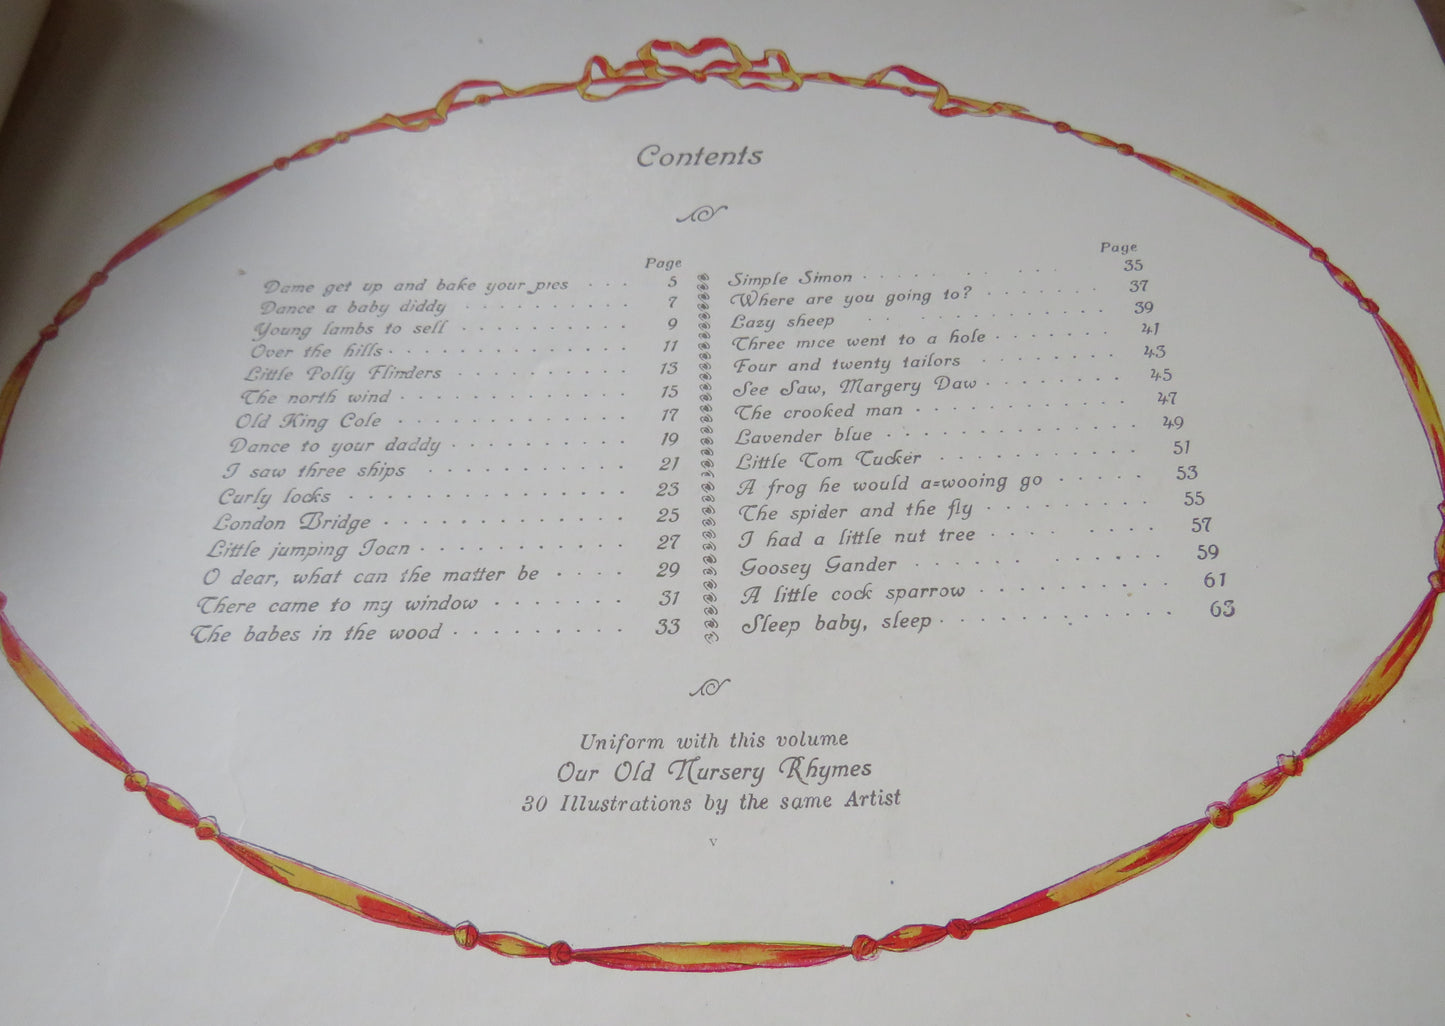 Contents
Page
Dame get up and bake your pies . . . 5
Dance a baby diddy . . . . . . . . 7
Young lambs to sell . . . . . . . . 9
Over the hills . . . . . . . . . . . 11
Little Polly Flinders . . . . . . . . 13
The north wind . . . . . . . . . . 15
Old King Cole . . . . . . . . . . 17
Dance to your daddy . . . . . . . . 19
I saw three ships . . . . . . . . . 21
Curly locks . . . . . . . . . . . . 23
London Bridge . . . . . . . . . . . 25
Little jumping Joan . . . . . . . . . 27
O dear, what can the matter be . . . . 29
There came to my window . . . . . . 31
The babes in the wood . . . . . . . . 33
Page
Simple Simon . . . . . . . . . 35
Where are you going to? . . . . . . . 37
Lazy sheep . . . . . . . . . . . 39
Three mice went to a hole . . . . . . 41
Four and twenty tailors . . . . . . . 43
See Saw, Margery Daw . . . . . . . 45
The crooked man . . . . . . . . . . 47
Lavender blue . . . . . . . . . . . 49
Little Tom Tucker . . . . . . . . . 51
A frog he would a=wooing go . . . . . 53
The spider and the fly . . . . . . . . 55
I had a little nut tree . . . . . . . 57
Goosey Gander . . . . . . . . . . 59
A little cock sparrow . . . . . . . . 61
Sleep baby, sleep . . . . . . . . . . 63
Uniform with this volume
Our Old Nursery Rhymes
30 Illustrations by the same Artist
v